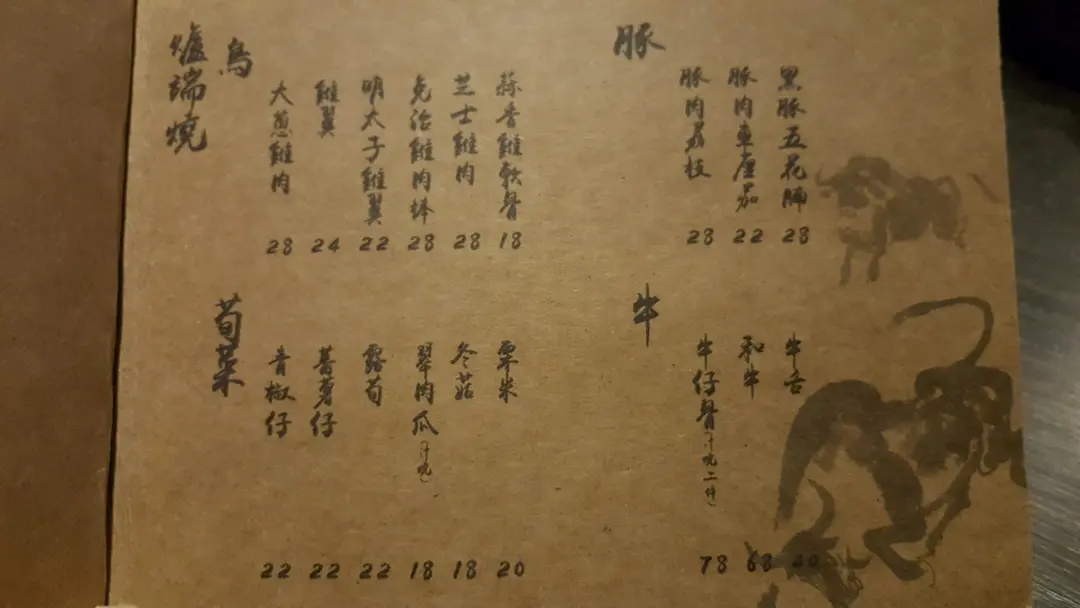 爐端燒
鳥
大葱雞肉 28
雞翼 24
明太子雞翼 22
免治雞肉棒 28
芝士雞肉 28
蒜香雞軟骨 18
豚
豚肉荔枝 28
豚肉車厘茄 22
黑豚五花腩 28
荀菜
青椒仔 22
蕃薯仔 22
露荀 22
翠肉瓜 18
冬菇 18
粟米 20
牛
牛仔骨 78
和牛 68
牛舌